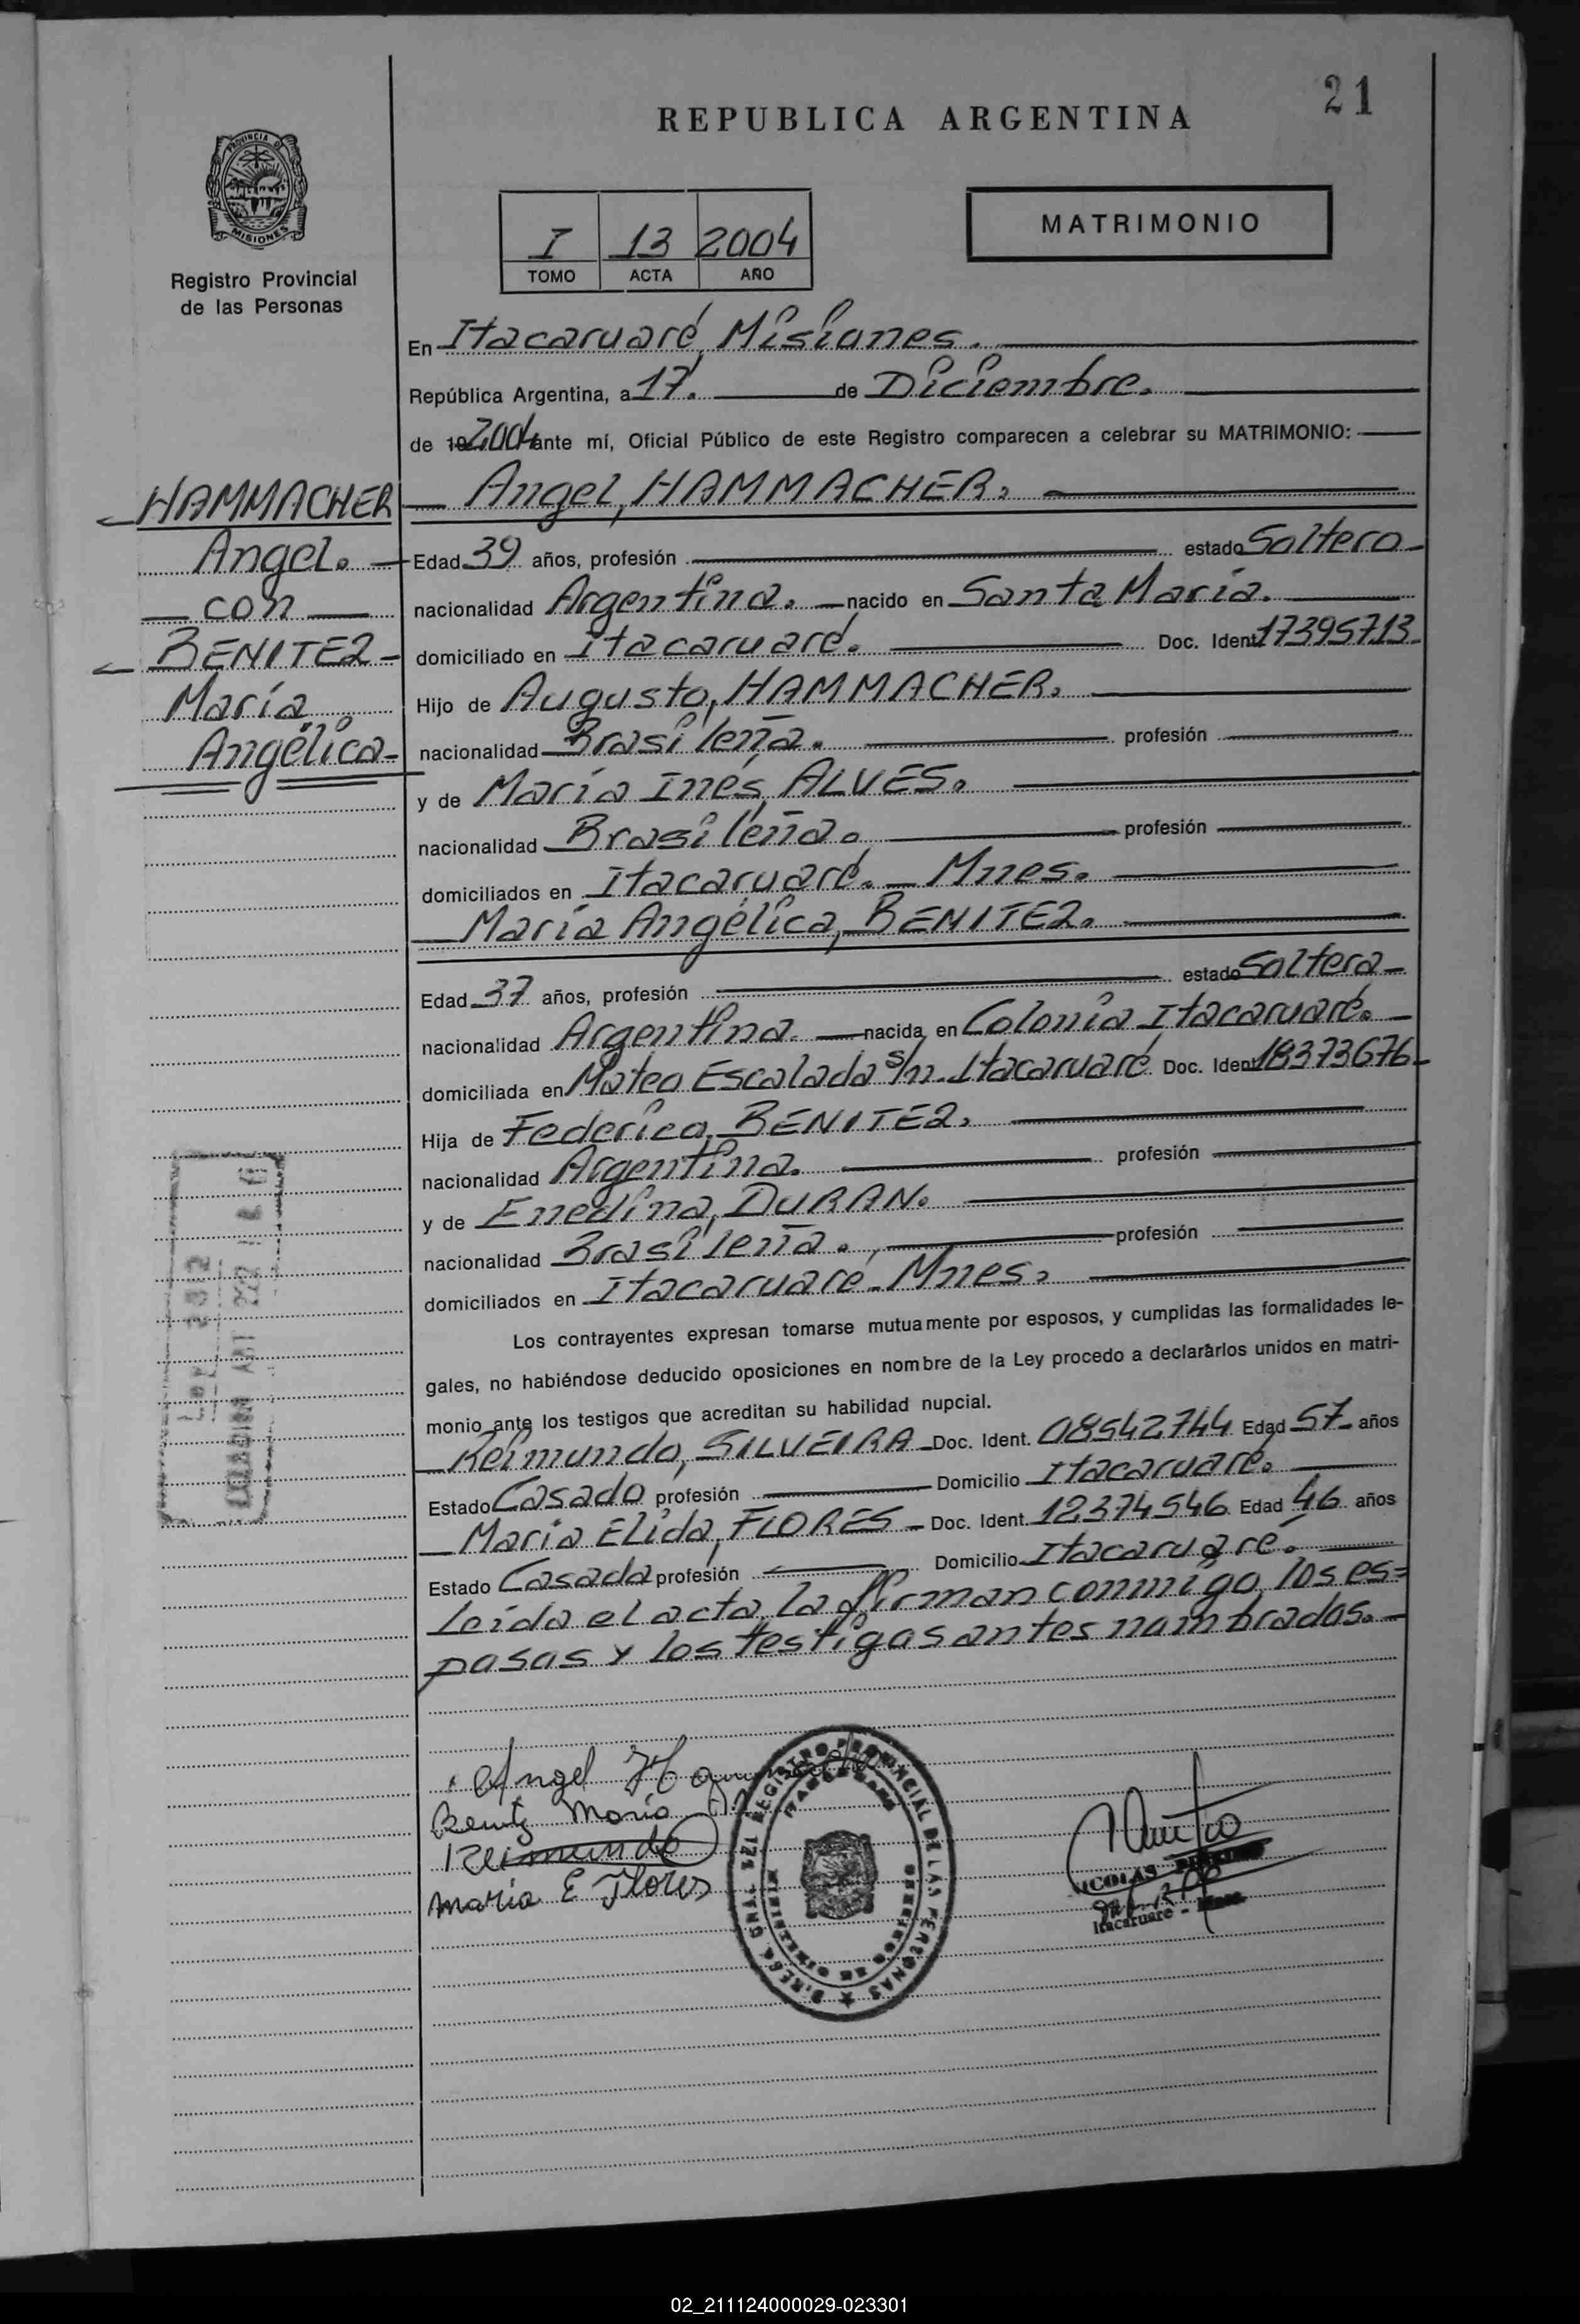 21
REPUBLICA ARGENTINA
PROVINCIA DE
MISIONES
Registro Provincial
de las Personas
I 13 2004
TOMO ACTA AÑO
MATRIMONIO
En Itacaruaré, Misiones.
República Argentina, a 17. de Diciembre.
de 19 2004 ante mí, Oficial Público de este Registro comparecen a celebrar su MATRIMONIO:
HAMMACHER
Angel.
con
BENITEZ
María
Angélica
Angel, HAMMACHER.
Edad 39 años, profesión estado Soltero
nacionalidad Argentina. nacido en Santa María.
domiciliado en Itacaruaré. Doc. Ident. 17395713
Hijo de Augusto, HAMMACHER.
nacionalidad Brasileña. profesión
y de María Inés, ALVES.
nacionalidad Brasileña. profesión
domiciliados en Itacaruaré. - Mnes.
María Angélica, BENITEZ.
Edad 37 años, profesión estado Soltera
nacionalidad Argentina. nacida en Colonia Itacaruaré.
domiciliada en Mateo Escalada s/n. Itacaruaré Doc. Ident 18373676
Hija de Federico, BENITEZ.
nacionalidad Argentina. profesión
y de Enedina, DURAN.
nacionalidad Brasileña. profesión
domiciliados en Itacaruaré - Mnes.
Los contrayentes expresan tomarse mutuamente por esposos, y cumplidas las formalidades le-
gales, no habiéndose deducido oposiciones en nombre de la Ley procedo a declarárlos unidos en matri-
monio ante los testigos que acreditan su habilidad nupcial.
Reimundo, SILVEIRA Doc. Ident. 08542744 Edad 57 años
Estado Casado profesión Domicilio Itacaruaré.
María Elida, FLORES Doc. Ident. 12374546 Edad 46 años
Estado Casada profesión Domicilio Itacaruaré.
Leída el acta, la firman conmigo, los es=
posos y los testigos antes nombrados.
Angel Hammacher
Benitz María
Reimundo
María E Flores
REGISTRO PROVINCIAL DE LAS PERSONAS
NICOLAS
Itacaruare -
02_211124000029-023301